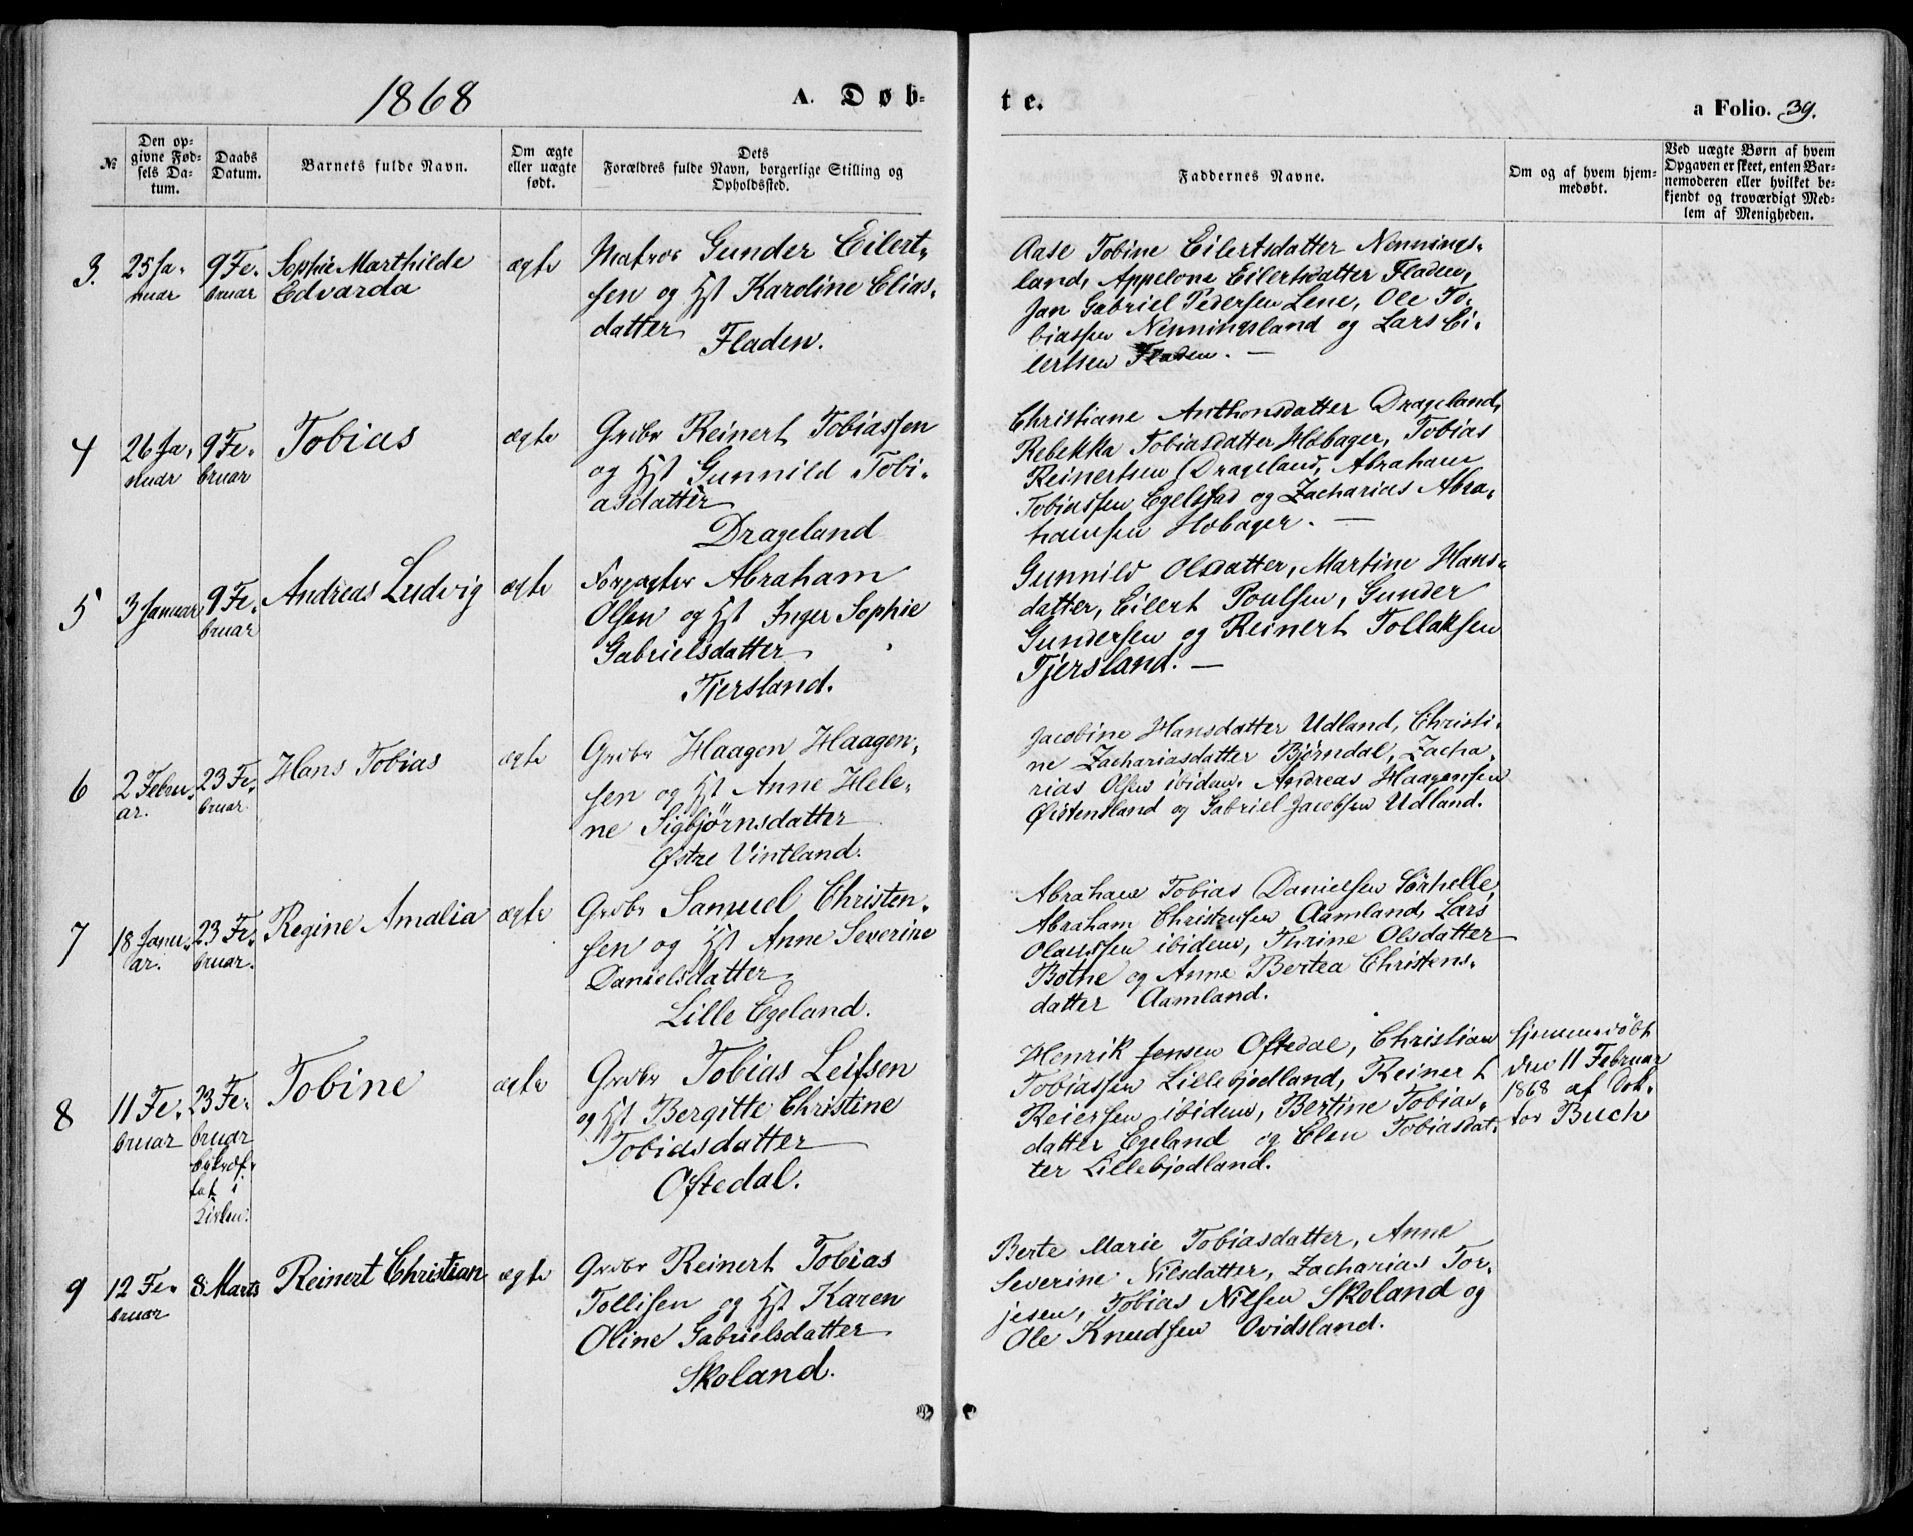 1868
A. Døb-
te.
a Folio. 39.
№
Den op-
givne Fød-
sels Da-
tum.
Daabs
Datum.
Barnets fulde Navn.
Om ægte
eller uægte
født.
Dets
Forældres fulde Navn, borgerlige Stilling og
Opholdssted.
Faddernes Navne.
Om og af hvem hjem-
medøbt.
Ved uægte Børn af hvem
Opgaven er skeet, enten Bar-
nemoderen eller hvilket be-
kjendt og troværdigt Med-
lem af Menigheden.
3.
25 Ja-
nuar
9 Fe-
bruar
Sophie Marthilde
Edvarda
ægte
Matros Gunder Eilert-
sen og Hst Karoline Elias-
datter
Fladen.
Aase Tobine Eilertsdatter Nennings-
land, Appelone Eilertsdatter Fladen,
Jan Gabriel Pedersen Lene, Ole To-
biassen Nenningsland og Lars Ei-
lertsen Fladen. —
4
26 Ja-
nuar
9 Fe-
bruar
Tobias
ægte
Grdbr Reinert Tobiassen
og Hst Gunnild Tobi-
asdatter
Drageland
Christiane Anthonsdatter Drageland,
Rebekka Tobiasdatter Hobager, Tobias
Reinertsen Drageland, Abraham
Tobiassen Egelstad og Zacharias Abra-
hamsen Hobager. —
5
3 Januar
9 Fe-
bruar
Andreas Ludvig
ægte
Forpagter Abraham
Olsen og Hst Inger Sophie
Gabrielsdatter
Tjersland.
Gunnild Olsdatter, Martine Hans-
datter, Eilert Poulsen, Gunder
Gundersen og Reinert Tollaksen
Tjersland. —
6
2 Febru-
ar.
23 Fe-
bruar
Hans Tobias
ægte
Grdbr Haagen Haagen-
sen og Hst Anne Hele-
ne Sigbjørnsdatter
Østre Vintland.
Jacobine Hansdatter Udland, Christi-
ne Zachariasdatter Bjørndal, Zacha-
rias Olsen ibidem, Andreas Haagensen
Øistensland og Gabriel Jacobsen Udland.
7
18 Janu-
ar.
23 Fe-
bruar.
Regine Amalia
ægte
Grdbr Samuel Christen-
sen og Hst Anne Severine
Danielsdatter
Lille Egeland.
Abraham Tobias Danielsen Sørhelle,
Abraham Christensen Aamland, Lars
Olaussen ibidem, Thrine Olsdatter
Botne og Anne Bertea Christens-
datter Aamland.
8
11 Fe-
bruar
23 Fe-
bruar
bekræf-
tet i
Kirken.
Tobine
ægte
Grdbr Tobias Leifsen
og Hst Bergitte Christine
Tobiasdatter
Oftedal.
Henrik Jensen Oftedal, Christian
Tobiassen Lillebjodland, Reinert
Reiersen ibidem, Bertine Tobias-
datter Egeland og Elen Tobiasdat-
ter Lillebjodland.
Hjemmedøbt
den 11 Februar
1868 af Dok-
tor Buch
9
12 Fe-
bruar
8 Marts
Reinert Christian
ægte
Grdbr Reinert Tobias
Tollisen og Hst Karen
Oline Gabrielsdatter
Skoland.
Berte Marie Tobiasdatter, Anne
Severine Nilsdatter, Zacharias Tor-
jesen, Tobias Nilsen Skoland og
Ole Knudsen Ovidsland.